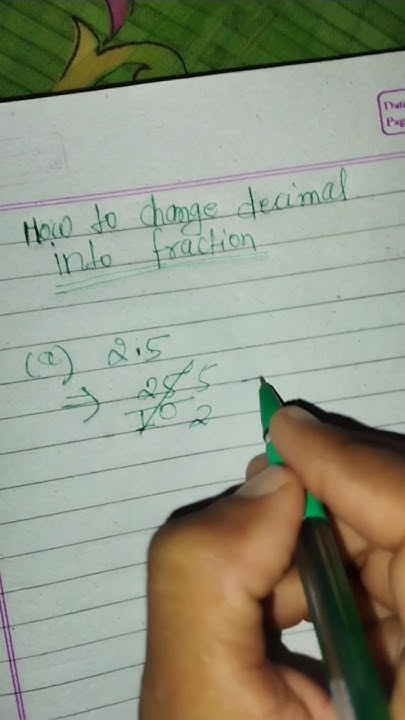 Date
Pag
How to change decimal
into fraction
(a) 2.5
⇒ 25 5
10 2